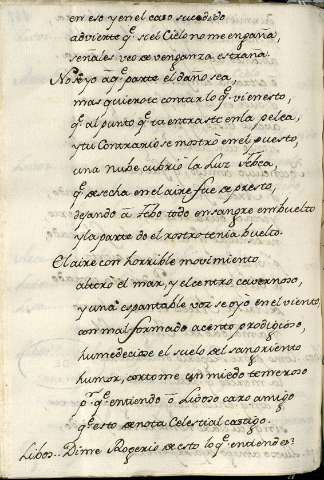 en eso y en el caso sucedido
advierte q̃ si el Cielo no me engaña,
señales veo de venganza estraña.
No sé yo a q̃ parte el daño sea,
mas quierote contar lo q̃ vi en esto,
q̃ al punto q̃ tu entraste en la pelea,
y tu Contrario se mostró en el puesto,
una nube cubrió la Luz Febea,
q̃ desecha en el aire fue de presto,
dejando a Febo todo en sangre embuelto
y la parte do el rostro tenia buelto.
El aire con horrible movimiento
alteró el mar, y el centro cavernoso,
y una espantable voz se oyó en el viento,
con mal formado acento prodigioso,
humedeciose el suelo del sangriento
humor, cortome un miedo temeroso
p.r q̃ entiendo ò Liboso caro amigo
q̃ esto denota Celestial castigo.
Libos.. Dime Rogerio de esto lo q̃ entiendes?